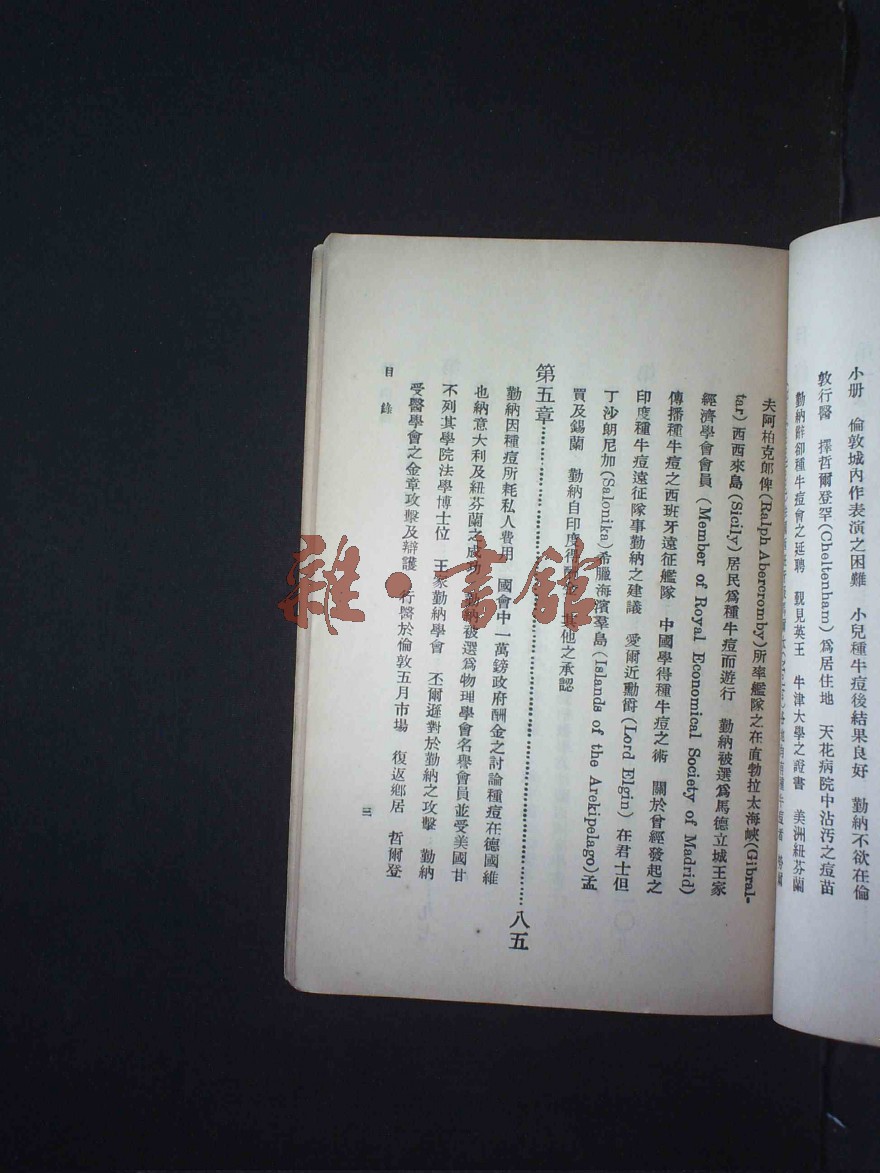 小册　倫敦城內作表演之困難　小兒種牛痘後結果良好　勤納不欲在倫
敦行醫　擇哲爾登罕(Cheltenham)爲居住地　天花病院中沾汚之痘苗
勤納辭卻種牛痘會之延聘　覲見英王　牛津大學之證書　美洲紐芬蘭
夫阿柏克郎俾(Ralph Abercromby)所率艦隊之在直勃拉太海峽(Gibral-
tar)西西來島(Sicily)居民爲種牛痘而遊行　勤納被選爲馬德立城王家
經濟學會會員(Member of Royal Economical Society of Madrid)
傳播種牛痘之西班牙遠征艦隊　中國學得種牛痘之術　關於曾經發起之
印度種牛痘遠征隊事勤納之建議　愛爾近勳爵(Lord Elgin)在君士但
丁沙朗尼加(Salonika)希臘海濱羣島(Islands of the Arekipelago)孟
買及錫蘭　勤納自印度得　其他之承認
第五章……八五
勤納因種痘所耗私人費用　國會中一萬鎊政府酬金之討論種痘在德國維
也納意大利及紐芬蘭之成功　勤納被選爲物理學會名譽會員並受美國甘
不列其學院法學博士位　王家勤納學會　丕爾遜對於勤納之攻擊　勤納
受醫學會之金章攻擊及辯護　行醫於倫敦五月市場　復返鄉居　哲爾登
目錄
三
雜·書館